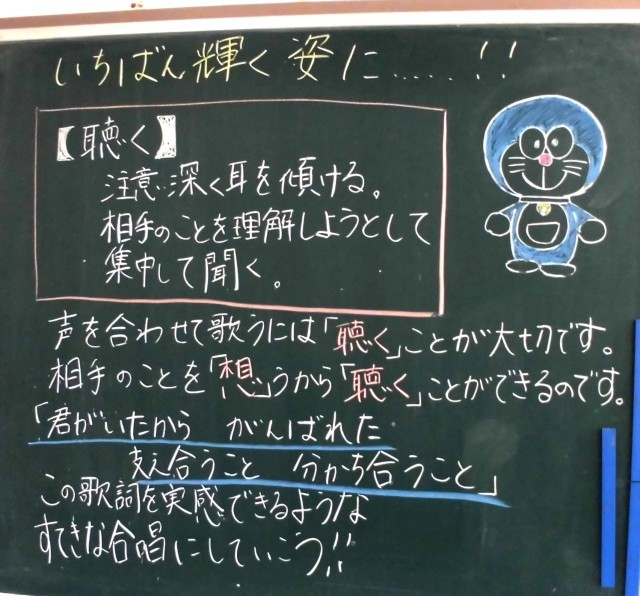 いちばん輝く姿に.....!!
【聴く】
注意深く耳を傾ける。
相手のことを理解しようとして
集中して聞く。
声を合わせて歌うには「聴く」ことが大切です。
相手のことを「想」うから「聴く」ことができるのです。
「君がいたから がんばれた
支え合うこと 分かち合うこと」
この歌詞を実感できるような
すてきな合唱にしていこう!!